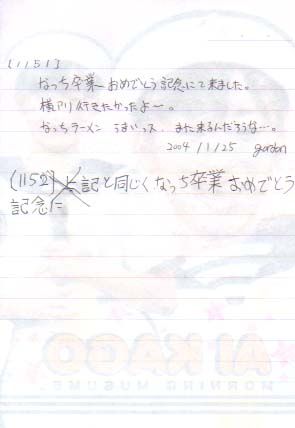 (1151)
なっち卒業おめでとう記念にて来ました。
横アリ行きたかったよ〜。
なっちラーメン うまいっス、また来るんだろうな…。
2004/1/25 gordon
(1152) 上記と同じくなっち卒業おめでとう
記念に
AI KAGO
MORNING MUSUME。